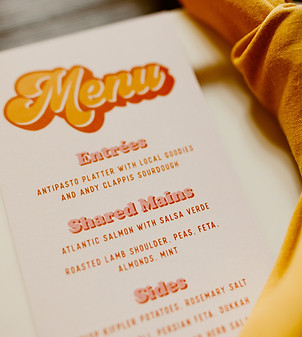 Menu
Entrées
ANTIPASTO PLATTER WITH LOCAL GOODIES
AND ANDY CLAPPIS SOURDOUGH
Shared Mains
ATLANTIC SALMON WITH SALSA VERDE
ROASTED LAMB SHOULDER, PEAS, FETA,
ALMONDS, MINT
Sides
KIPFLER POTATOES, ROSEMARY SALT
PERSIAN FETA, DUKKAH
HERB SALT